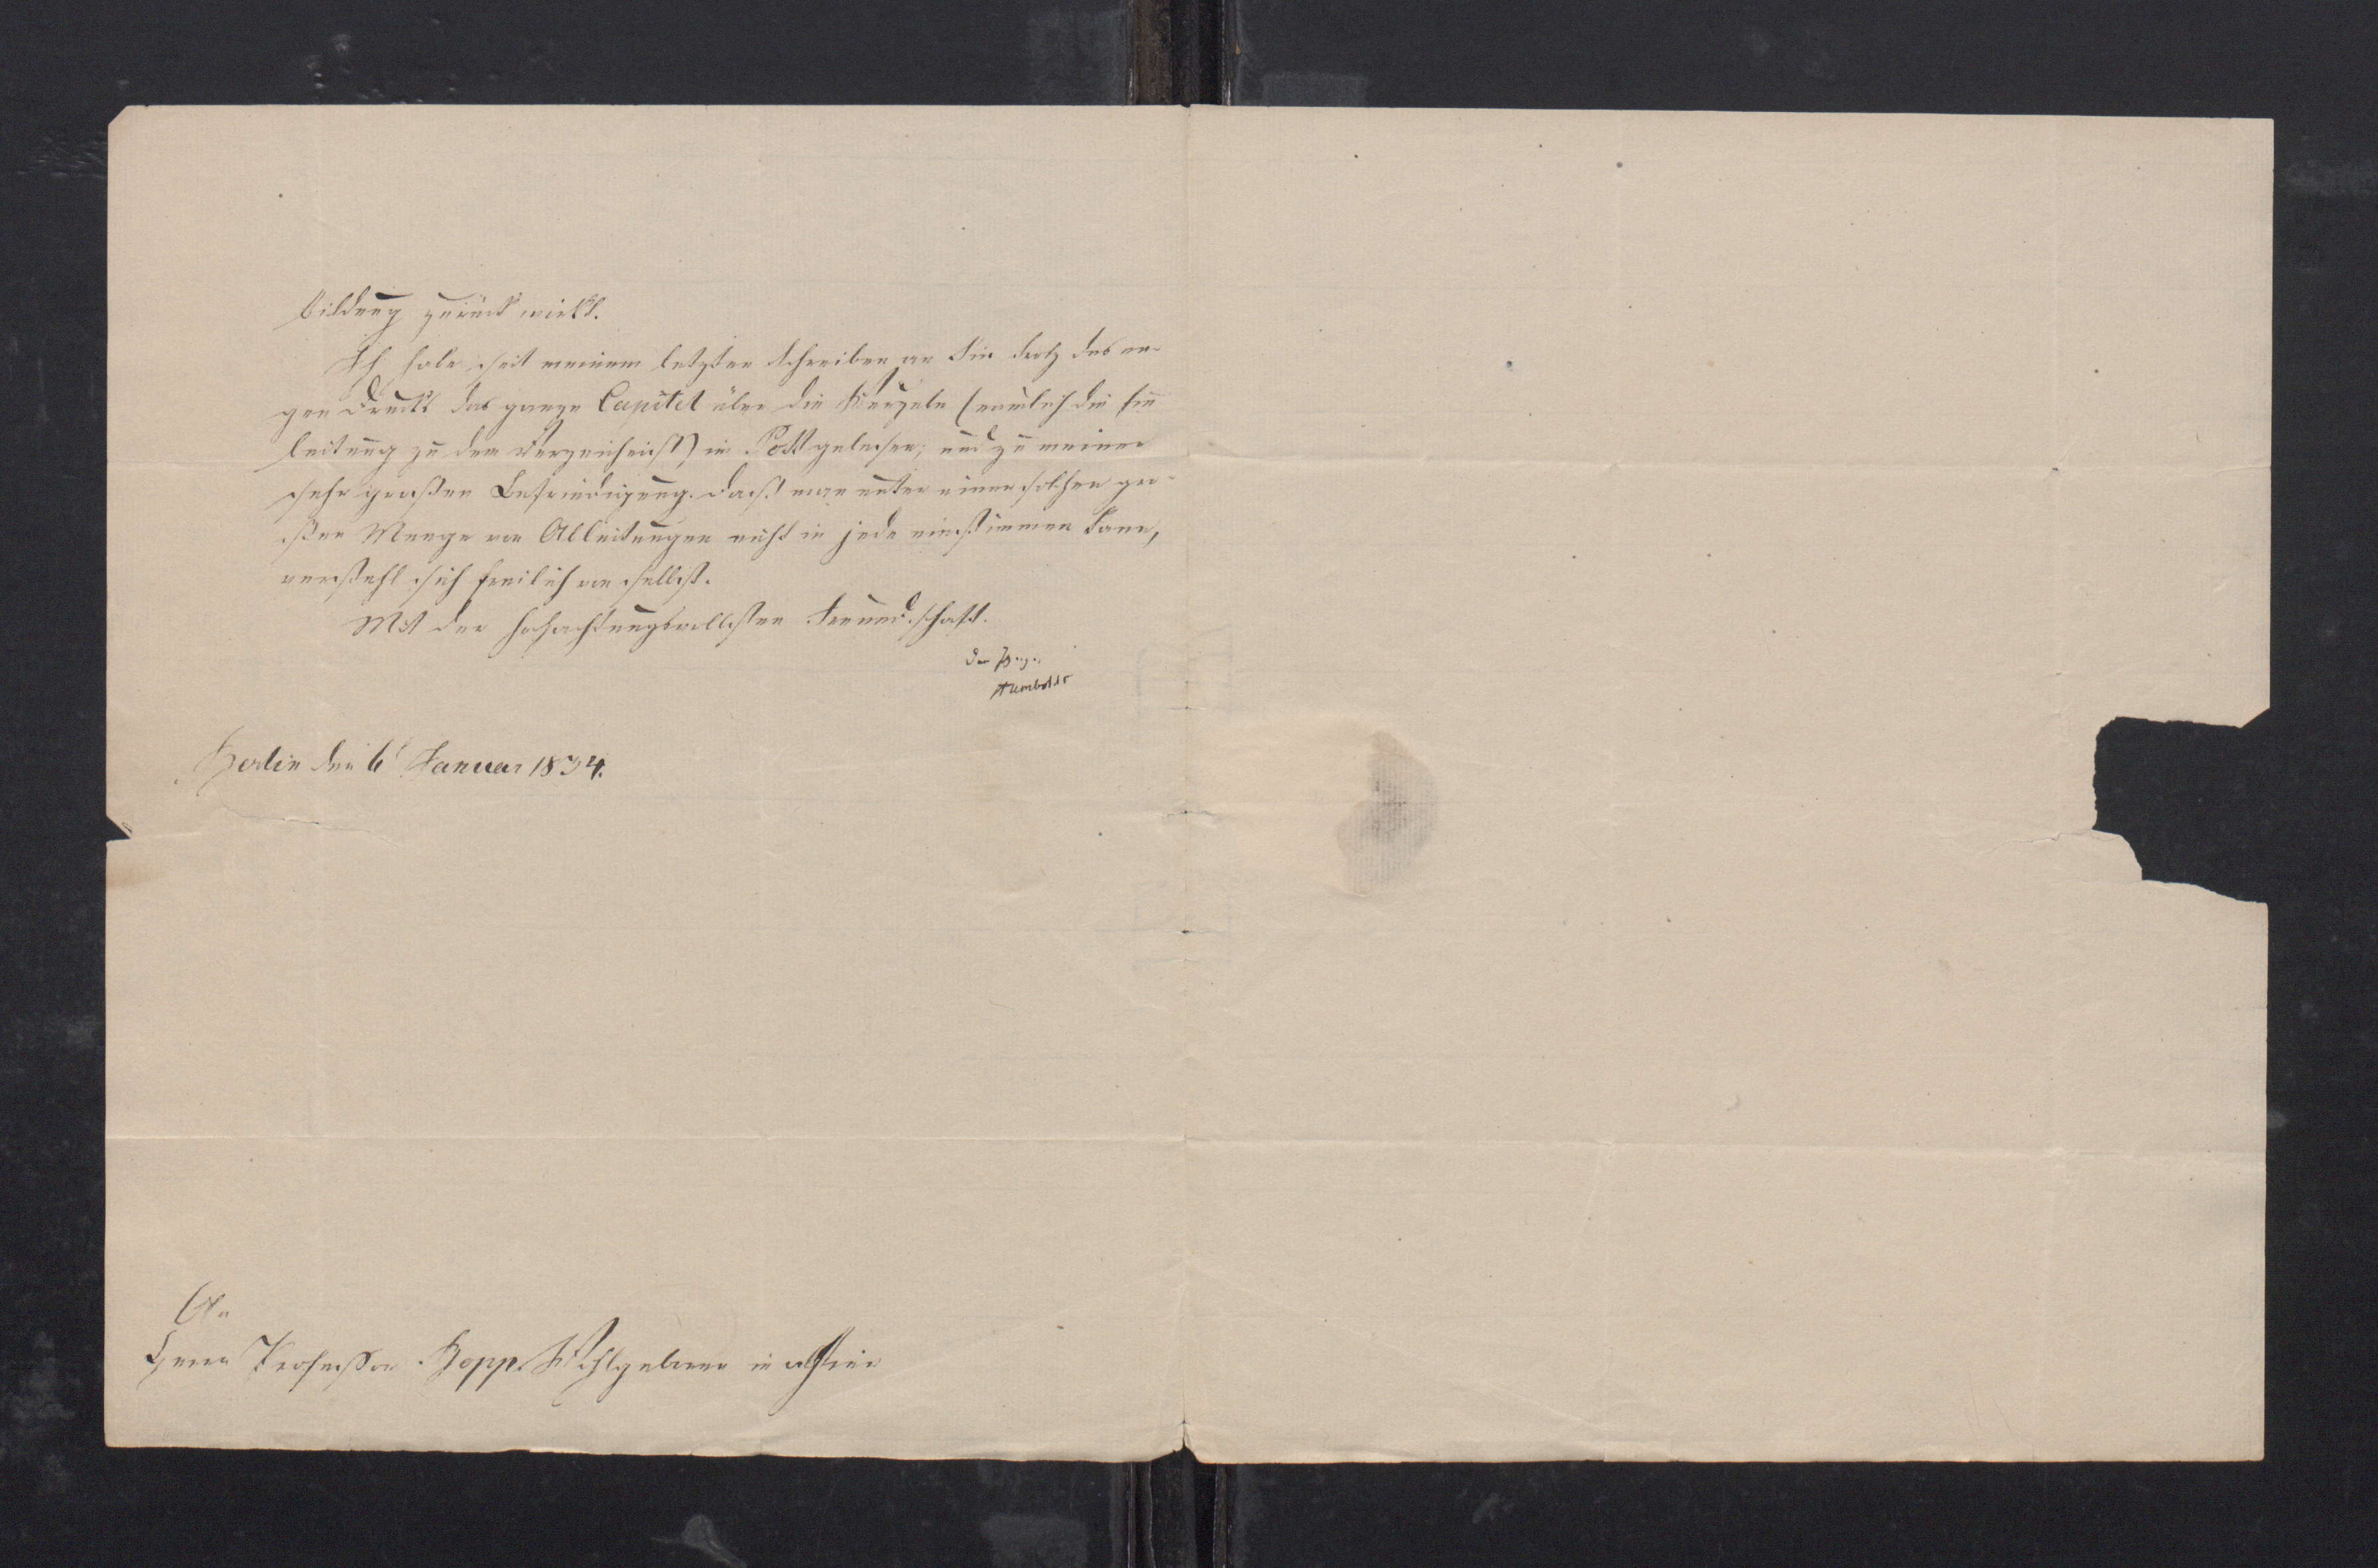 bildung zurück wirkt.
Ich habe seit meinem letzten Schreiben an Sie trotz des en-
gen Drucks das ganze Capitel über die Wurzeln (nämlich die Ein
leitung zu dem Verzeichniß) in Pott gelesen, und zu meiner
sehr großen Befriedigung. Daß man unter einer solchen gro-
ßen Menge von Ableitungen nicht in jede einstimmen kann,
versteht sich freilich von selbst.
Mit der hochachtungsvollsten Freundschaft.
der Ihrige
Humboldt
Berlin den 6t Januar 1834.
An
Herrn Professor Bopp Wohlgeboren in